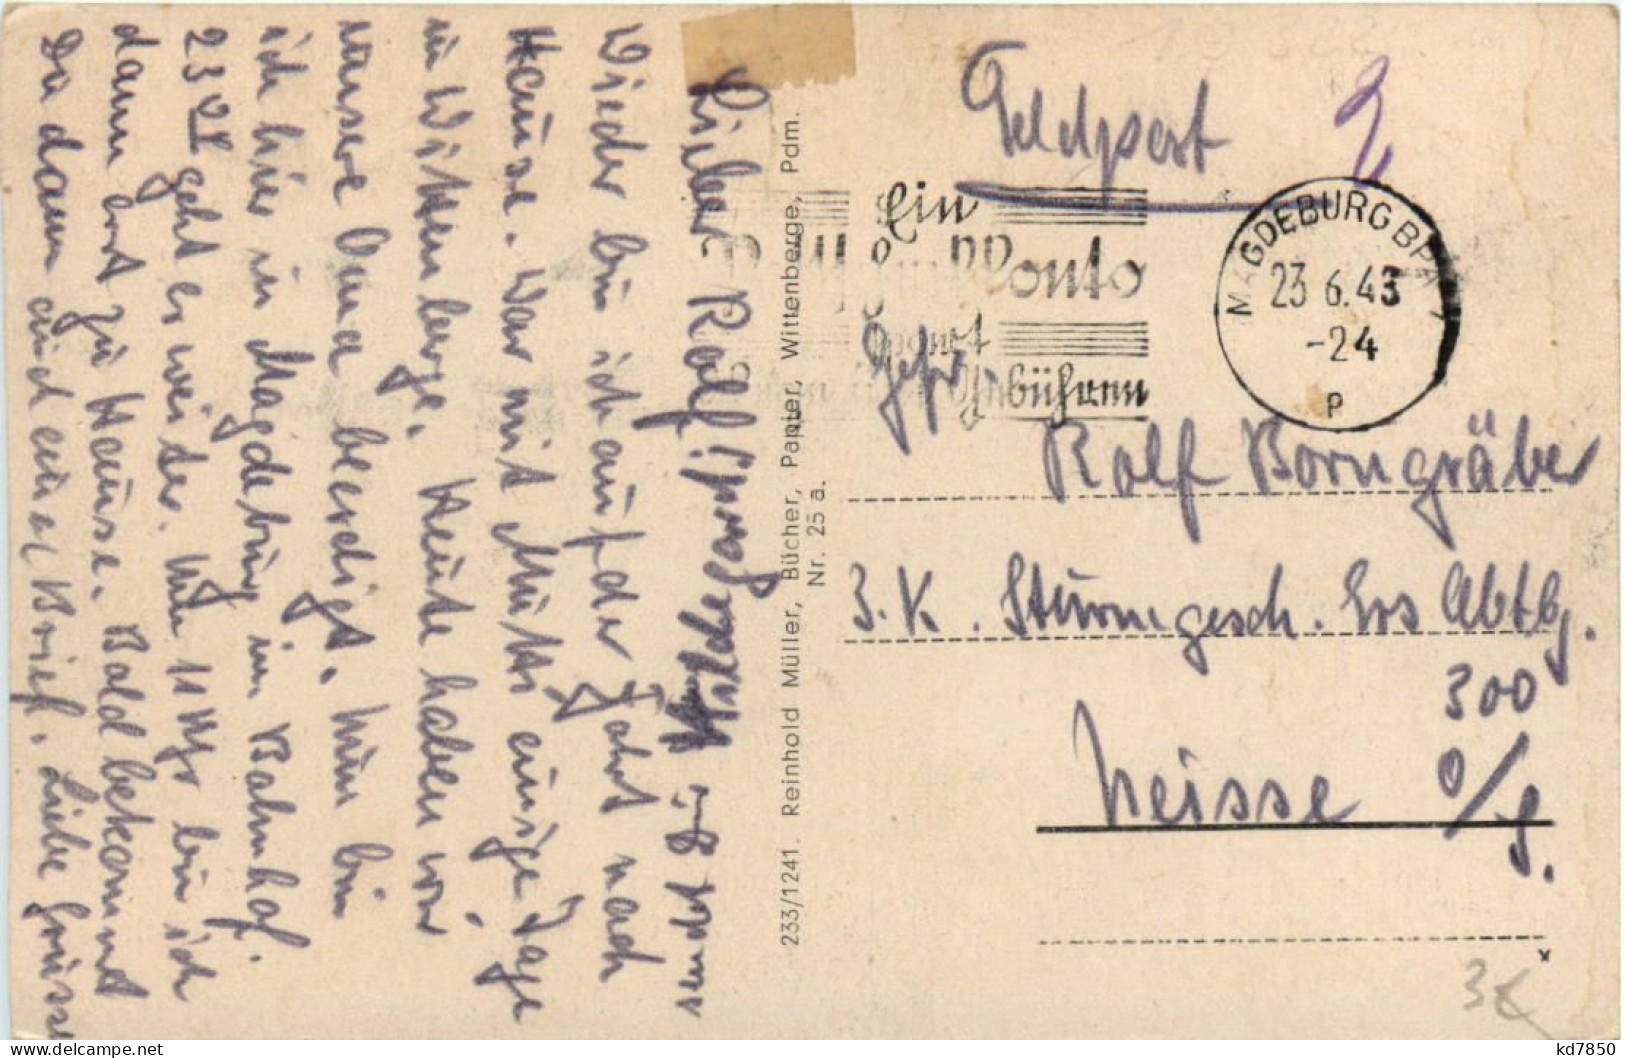 Lieber Rolf!
Wieder bin ich auf der Fahrt nach
Hause. War mit Mutti einige Tage
in Wittenberge. Heute haben wir
unsere Oma beerdigt. Nun bin
ich hier in Magdeburg im Bahnhof.
23 geht es weiter. Um 11 Uhr bin ich
dann erst zu Hause. Bald bekommt
Da dann auch einen Brief. Liebe Grüsse
Hildegard
233/1241. Reinhold Müller, Bücher, Papier, Wittenberge, Pdm.
Nr. 25 a.
Feldpost
Ein
Konto
spart
Gebühren
MAGDEBURG BPA
23.6.43
-24
P
Gefr.
Rolf Borngräber
3. K. Sturmgesch. Ers Abtlg.
300
Neisse O/S.
3€
kd7850